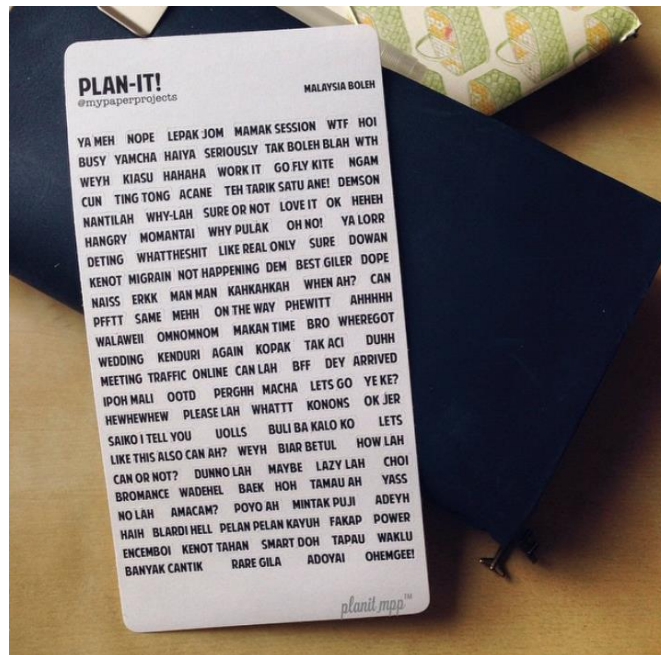 PLAN-IT!
@mypaperprojects
MALAYSIA BOLEH
YA MEH NOPE LEPAK JOM MAMAK SESSION WTF HOI
BUSY YAMCHA HAIYA SERIOUSLY TAK BOLEH BLAH WTH
WEYH KIASU HAHAHA WORK IT GO FLY KITE NGAM
CUN TING TONG ACANE TEH TARIK SATU ANE! DEMSON
NANTILAH WHY-LAH SURE OR NOT LOVE IT OK HEHEH
HANGRY MOMANTAI WHY PULAK OH NO! YA LORR
DETING WHATTHESHIT LIKE REAL ONLY SURE DOWAN
KENOT MIGRAIN NOT HAPPENING DEM BEST GILER DOPE
NAISS ERKK MAN MAN KAHKAHKAH WHEN AH? CAN
PFFTT SAME MEHH ON THE WAY PHEWITT AHHHHH
WALAWEII OMNOMNOM MAKAN TIME BRO WHEREGOT
WEDDING KENDURI AGAIN KOPAK TAK ACI DUHH
MEETING TRAFFIC ONLINE CAN LAH BFF DEY ARRIVED
IPOH MALI OOTD PERGHH MACHA LETS GO YE KE?
HEWHEWHEW PLEASE LAH WHATTT KONONS OK JER
SAIKO I TELL YOU UOLLS BULI BA KALO KO LETS
LIKE THIS ALSO CAN AH? WEYH BIAR BETUL HOW LAH
CAN OR NOT? DUNNO LAH MAYBE LAZY LAH CHOI
BROMANCE WADEHEL BAEK HOH TAMAU AH YASS
NO LAH AMACAM? POYO AH MINTAK PUJI ADEYH
HAIH BLARDI HELL PELAN PELAN KAYUH FAKAP POWER
ENCEMBOI KENOT TAHAN SMART DOH TAPAU WAKLU
BANYAK CANTIK RARE GILA ADOYAI OHEMGEE!
planit.mpp™